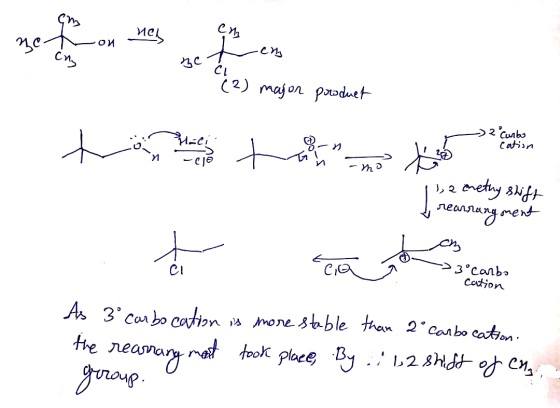 CH3
H3C OH HCl CH3
CH3 H3C CH3
Cl
(2) major product
H-Cl
-Cl⊖
O H
⊕ O-H H
-H2O
1 2 ⊕
2° carbo
cation
1,2 methy shift
rearrangment
Cl
Cl⊖
CH3
⊕
3° carbo
cation
As 3° carbocation is more stable than 2° carbocation.
the rearrangmet took place, By ∴ 1,2 shift of CH3
group.